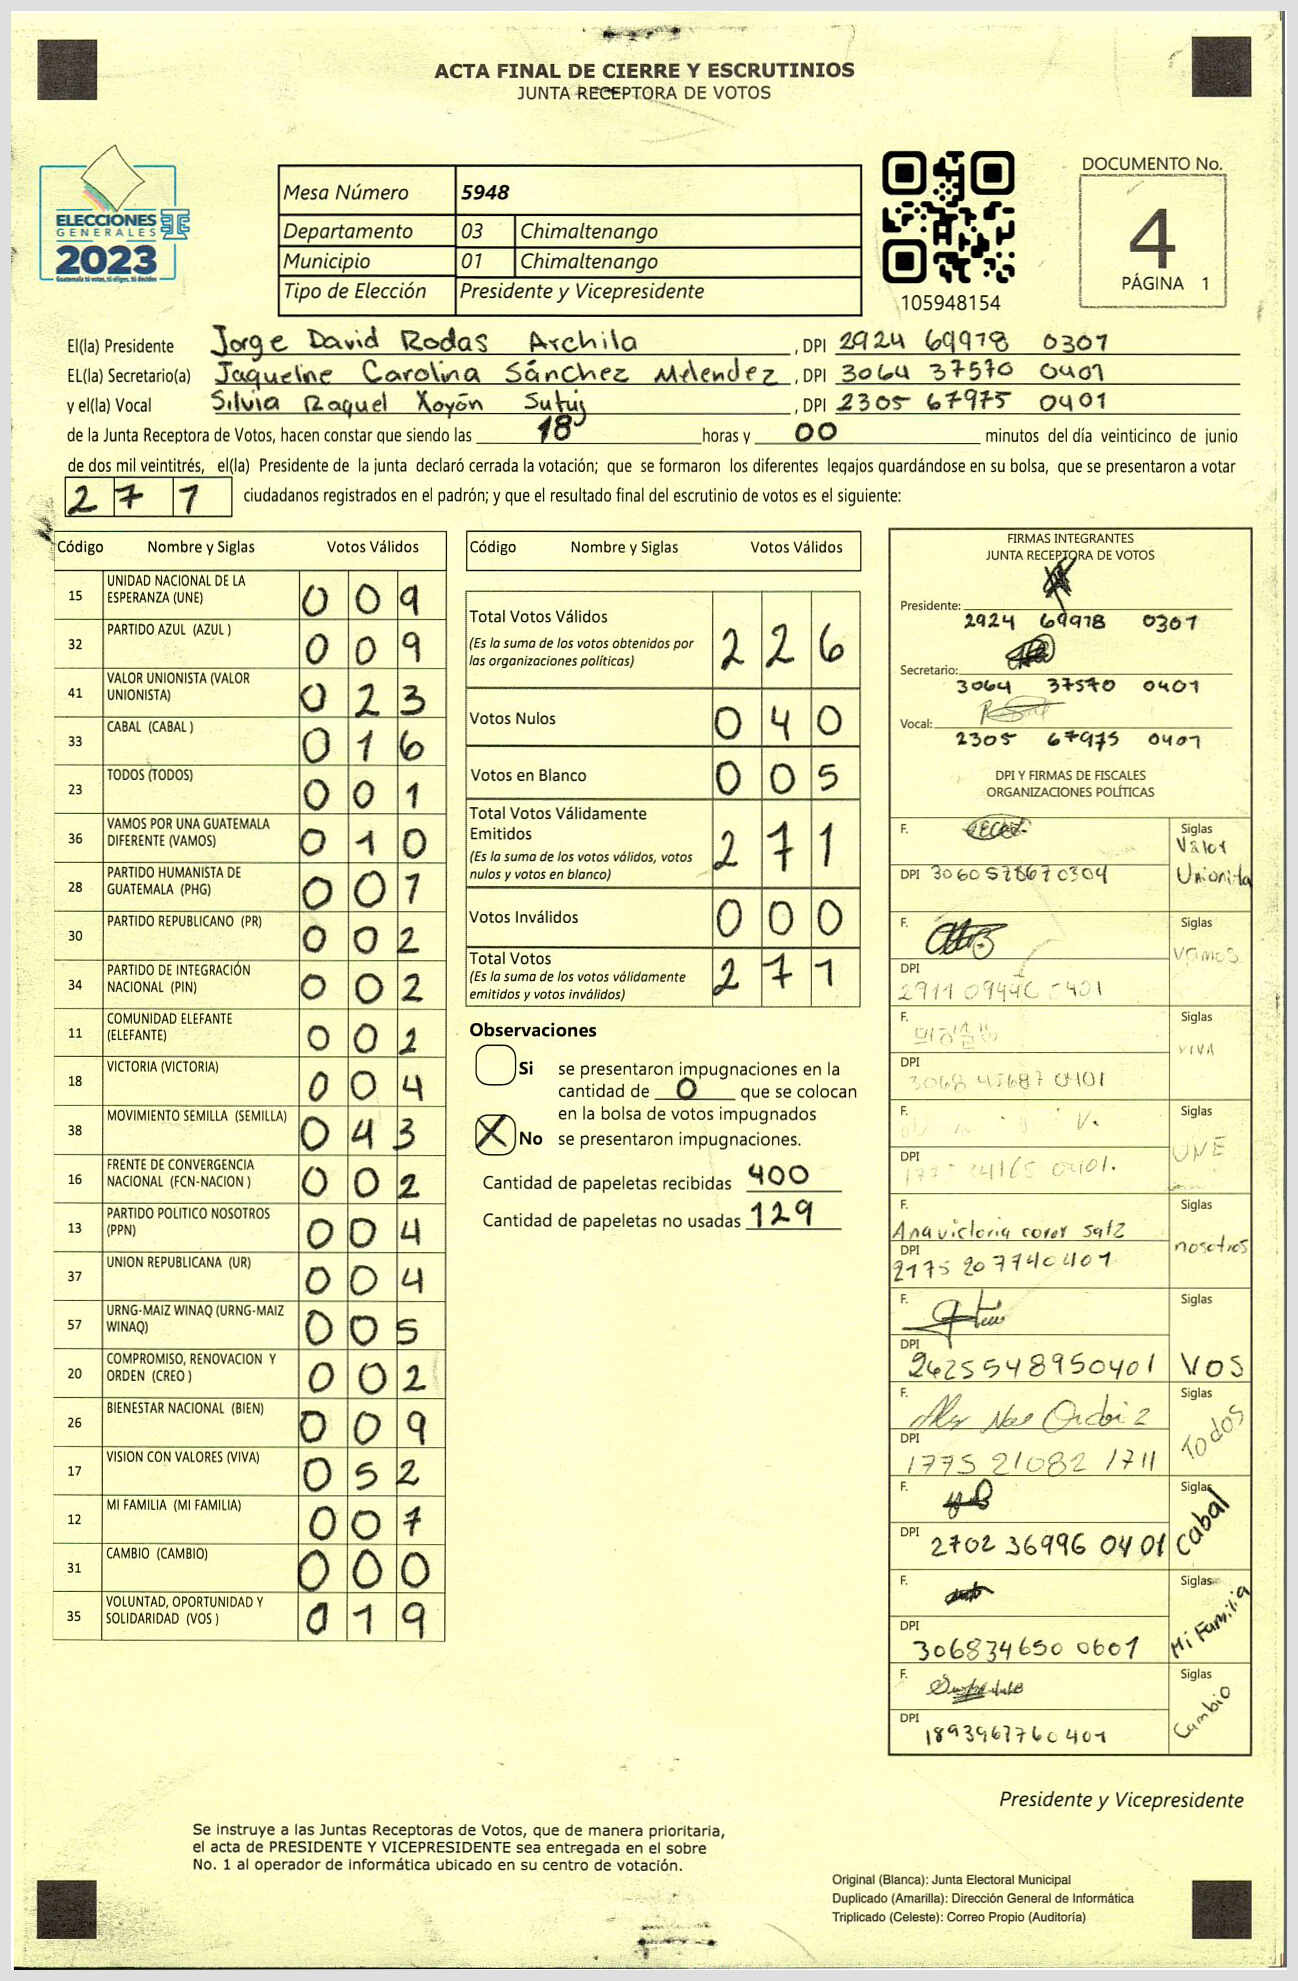 ACTA FINAL DE CIERRE Y ESCRUTINIOS
JUNTA RECEPTORA DE VOTOS
ELECCIONES
GENERALES
2023
Guatemala tú votas, tú eliges, tú decides
Mesa Número 5948
Departamento 03 Chimaltenango
Municipio 01 Chimaltenango
Tipo de Elección Presidente y Vicepresidente
105948154
DOCUMENTO No.
4
PÁGINA 1
El(la) Presidente Jorge David Rodas Archila, DPI 2924 69978 0301
EL(la) Secretario(a) Jaqueline Carolina Sánchez Melendez, DPI 3064 37570 0401
y el(la) Vocal Silvia Raquel Xoyón Sutuj, DPI 2305 67975 0401
de la Junta Receptora de Votos, hacen constar que siendo las 18 horas y 00 minutos del día veinticinco de junio
de dos mil veintitrés, el(la) Presidente de la junta declaró cerrada la votación; que se formaron los diferentes legajos guardándose en su bolsa, que se presentaron a votar
271 ciudadanos registrados en el padrón; y que el resultado final del escrutinio de votos es el siguiente:
Código Nombre y Siglas Votos Válidos
15 UNIDAD NACIONAL DE LA ESPERANZA (UNE) 009
32 PARTIDO AZUL (AZUL ) 009
41 VALOR UNIONISTA (VALOR UNIONISTA) 023
33 CABAL (CABAL ) 016
23 TODOS (TODOS) 001
36 VAMOS POR UNA GUATEMALA DIFERENTE (VAMOS) 010
28 PARTIDO HUMANISTA DE GUATEMALA (PHG) 001
30 PARTIDO REPUBLICANO (PR) 002
34 PARTIDO DE INTEGRACIÓN NACIONAL (PIN) 002
11 COMUNIDAD ELEFANTE (ELEFANTE) 002
18 VICTORIA (VICTORIA) 004
38 MOVIMIENTO SEMILLA (SEMILLA) 043
16 FRENTE DE CONVERGENCIA NACIONAL (FCN-NACION ) 002
13 PARTIDO POLITICO NOSOTROS (PPN) 004
37 UNION REPUBLICANA (UR) 004
57 URNG-MAIZ WINAQ (URNG-MAIZ WINAQ) 005
20 COMPROMISO, RENOVACION Y ORDEN (CREO ) 002
26 BIENESTAR NACIONAL (BIEN) 009
17 VISION CON VALORES (VIVA) 052
12 MI FAMILIA (MI FAMILIA) 007
31 CAMBIO (CAMBIO) 000
35 VOLUNTAD, OPORTUNIDAD Y SOLIDARIDAD (VOS ) 019
Código Nombre y Siglas Votos Válidos
Total Votos Válidos 226
(Es la suma de los votos obtenidos por
las organizaciones políticas)
Votos Nulos 040
Votos en Blanco 005
Total Votos Válidamente
Emitidos 271
(Es la suma de los votos válidos, votos
nulos y votos en blanco)
Votos Inválidos 000
Total Votos 271
(Es la suma de los votos válidamente
emitidos y votos inválidos)
Observaciones
Si se presentaron impugnaciones en la
cantidad de 0 que se colocan
en la bolsa de votos impugnados
X No se presentaron impugnaciones.
Cantidad de papeletas recibidas 400
Cantidad de papeletas no usadas 129
FIRMAS INTEGRANTES
JUNTA RECEPTORA DE VOTOS
Presidente:
2924 69978 0301
Secretario:
3064 37570 0401
Vocal:
2305 67975 0401
DPI Y FIRMAS DE FISCALES
ORGANIZACIONES POLÍTICAS
F. Siglas
Valor
Unionita
DPI 3060578670304
F. Siglas
vamos
DPI
F. Siglas
VIVA
DPI
F. Siglas
UNE
DPI
F. Siglas
Ana victoria
nosotros
DPI
2175 207740401
F. Siglas
DPI
2625548950401 VOS
F. Siglas
Todos
DPI
1775 21082 1711
F. Siglas
Cabal
DPI 2702 36996 0401
F. Siglas
Mi Familia
DPI
306834650 0601
F. Siglas
Cambio
DPI
1893967760401
Presidente y Vicepresidente
Se instruye a las Juntas Receptoras de Votos, que de manera prioritaria,
el acta de PRESIDENTE Y VICEPRESIDENTE sea entregada en el sobre
No. 1 al operador de informática ubicado en su centro de votación.
Original (Blanca): Junta Electoral Municipal
Duplicado (Amarilla): Dirección General de Informática
Triplicado (Celeste): Correo Propio (Auditoría)